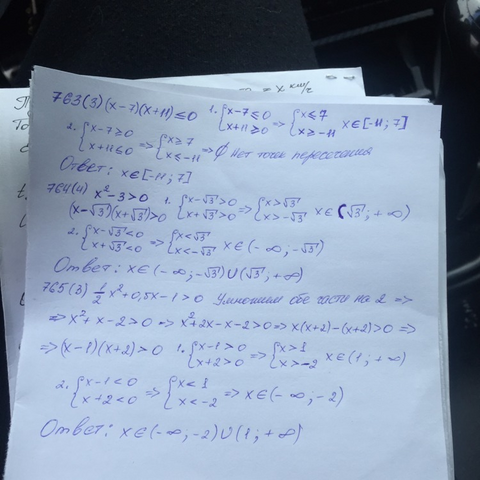 = x км/г
763(3) (x-7)(x+11)≤0 1. {x-7≤0 x+11≥0 => {x≤7 x≥-11 x∈[-11; 7]
2. {x-7≥0 x+11≤0 => {x≥7 x≤-11 => ∅ Нет точек пересечения
Ответ: x∈[-11; 7]
764(4) x²-3>0 1. {x-√3>0 x+√3>0 => {x>√3 x>-√3 x∈(√3; +∞)
(x-√3)(x+√3)>0
2. {x-√3<0 x+√3<0 => {x<√3 x<-√3 x∈(-∞; -√3)
Ответ: x∈(-∞; -√3)∪(√3; +∞)
765(3) 1/2 x²+0,5x-1>0 Умножим обе части на 2 =>
=> x²+x-2>0 => x²+2x-x-2>0 => x(x+2)-(x+2)>0 =>
=> (x-1)(x+2)>0 1. {x-1>0 x+2>0 => {x>1 x>-2 x∈(1; +∞)
2. {x-1<0 x+2<0 => {x<1 x<-2 => x∈(-∞; -2)
Ответ: x∈(-∞; -2)∪(1; +∞)